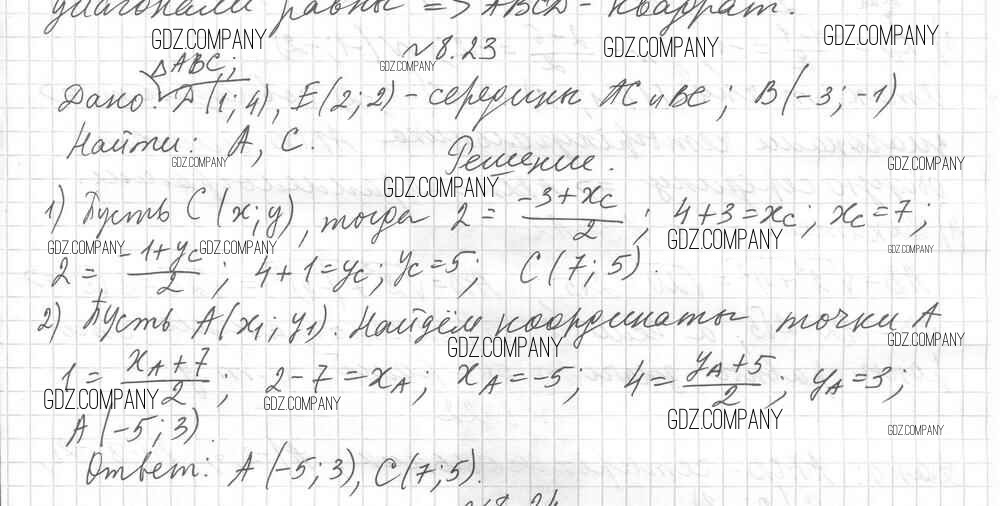 диагонали равны => ABCD - квадрат.
GDZ.COMPANY GDZ.COMPANY GDZ.COMPANY
№8.23
GDZ.COMPANY
△ABC;
Дано: P(1;4), E(2;2) - середины AC и BC; B(-3;-1)
Найти: A, C.
GDZ.COMPANY Решение. GDZ.COMPANY
GDZ.COMPANY
1) Пусть C(x;y), тогда 2 = (-3+xC)/2; 4+3=xC; xC=7;
GDZ.COMPANY GDZ.COMPANY GDZ.COMPANY GDZ.COMPANY
2 = (-1+yC)/2; 4+1=yC; yC=5; C(7;5).
2) Пусть A(x1;y1). Найдём координаты точки A
GDZ.COMPANY GDZ.COMPANY
1 = (xA+7)/2; 2-7=xA; xA=-5; 4=(yA+5)/2; yA=3;
GDZ.COMPANY GDZ.COMPANY GDZ.COMPANY GDZ.COMPANY
A(-5;3).
Ответ: A(-5;3), C(7;5).